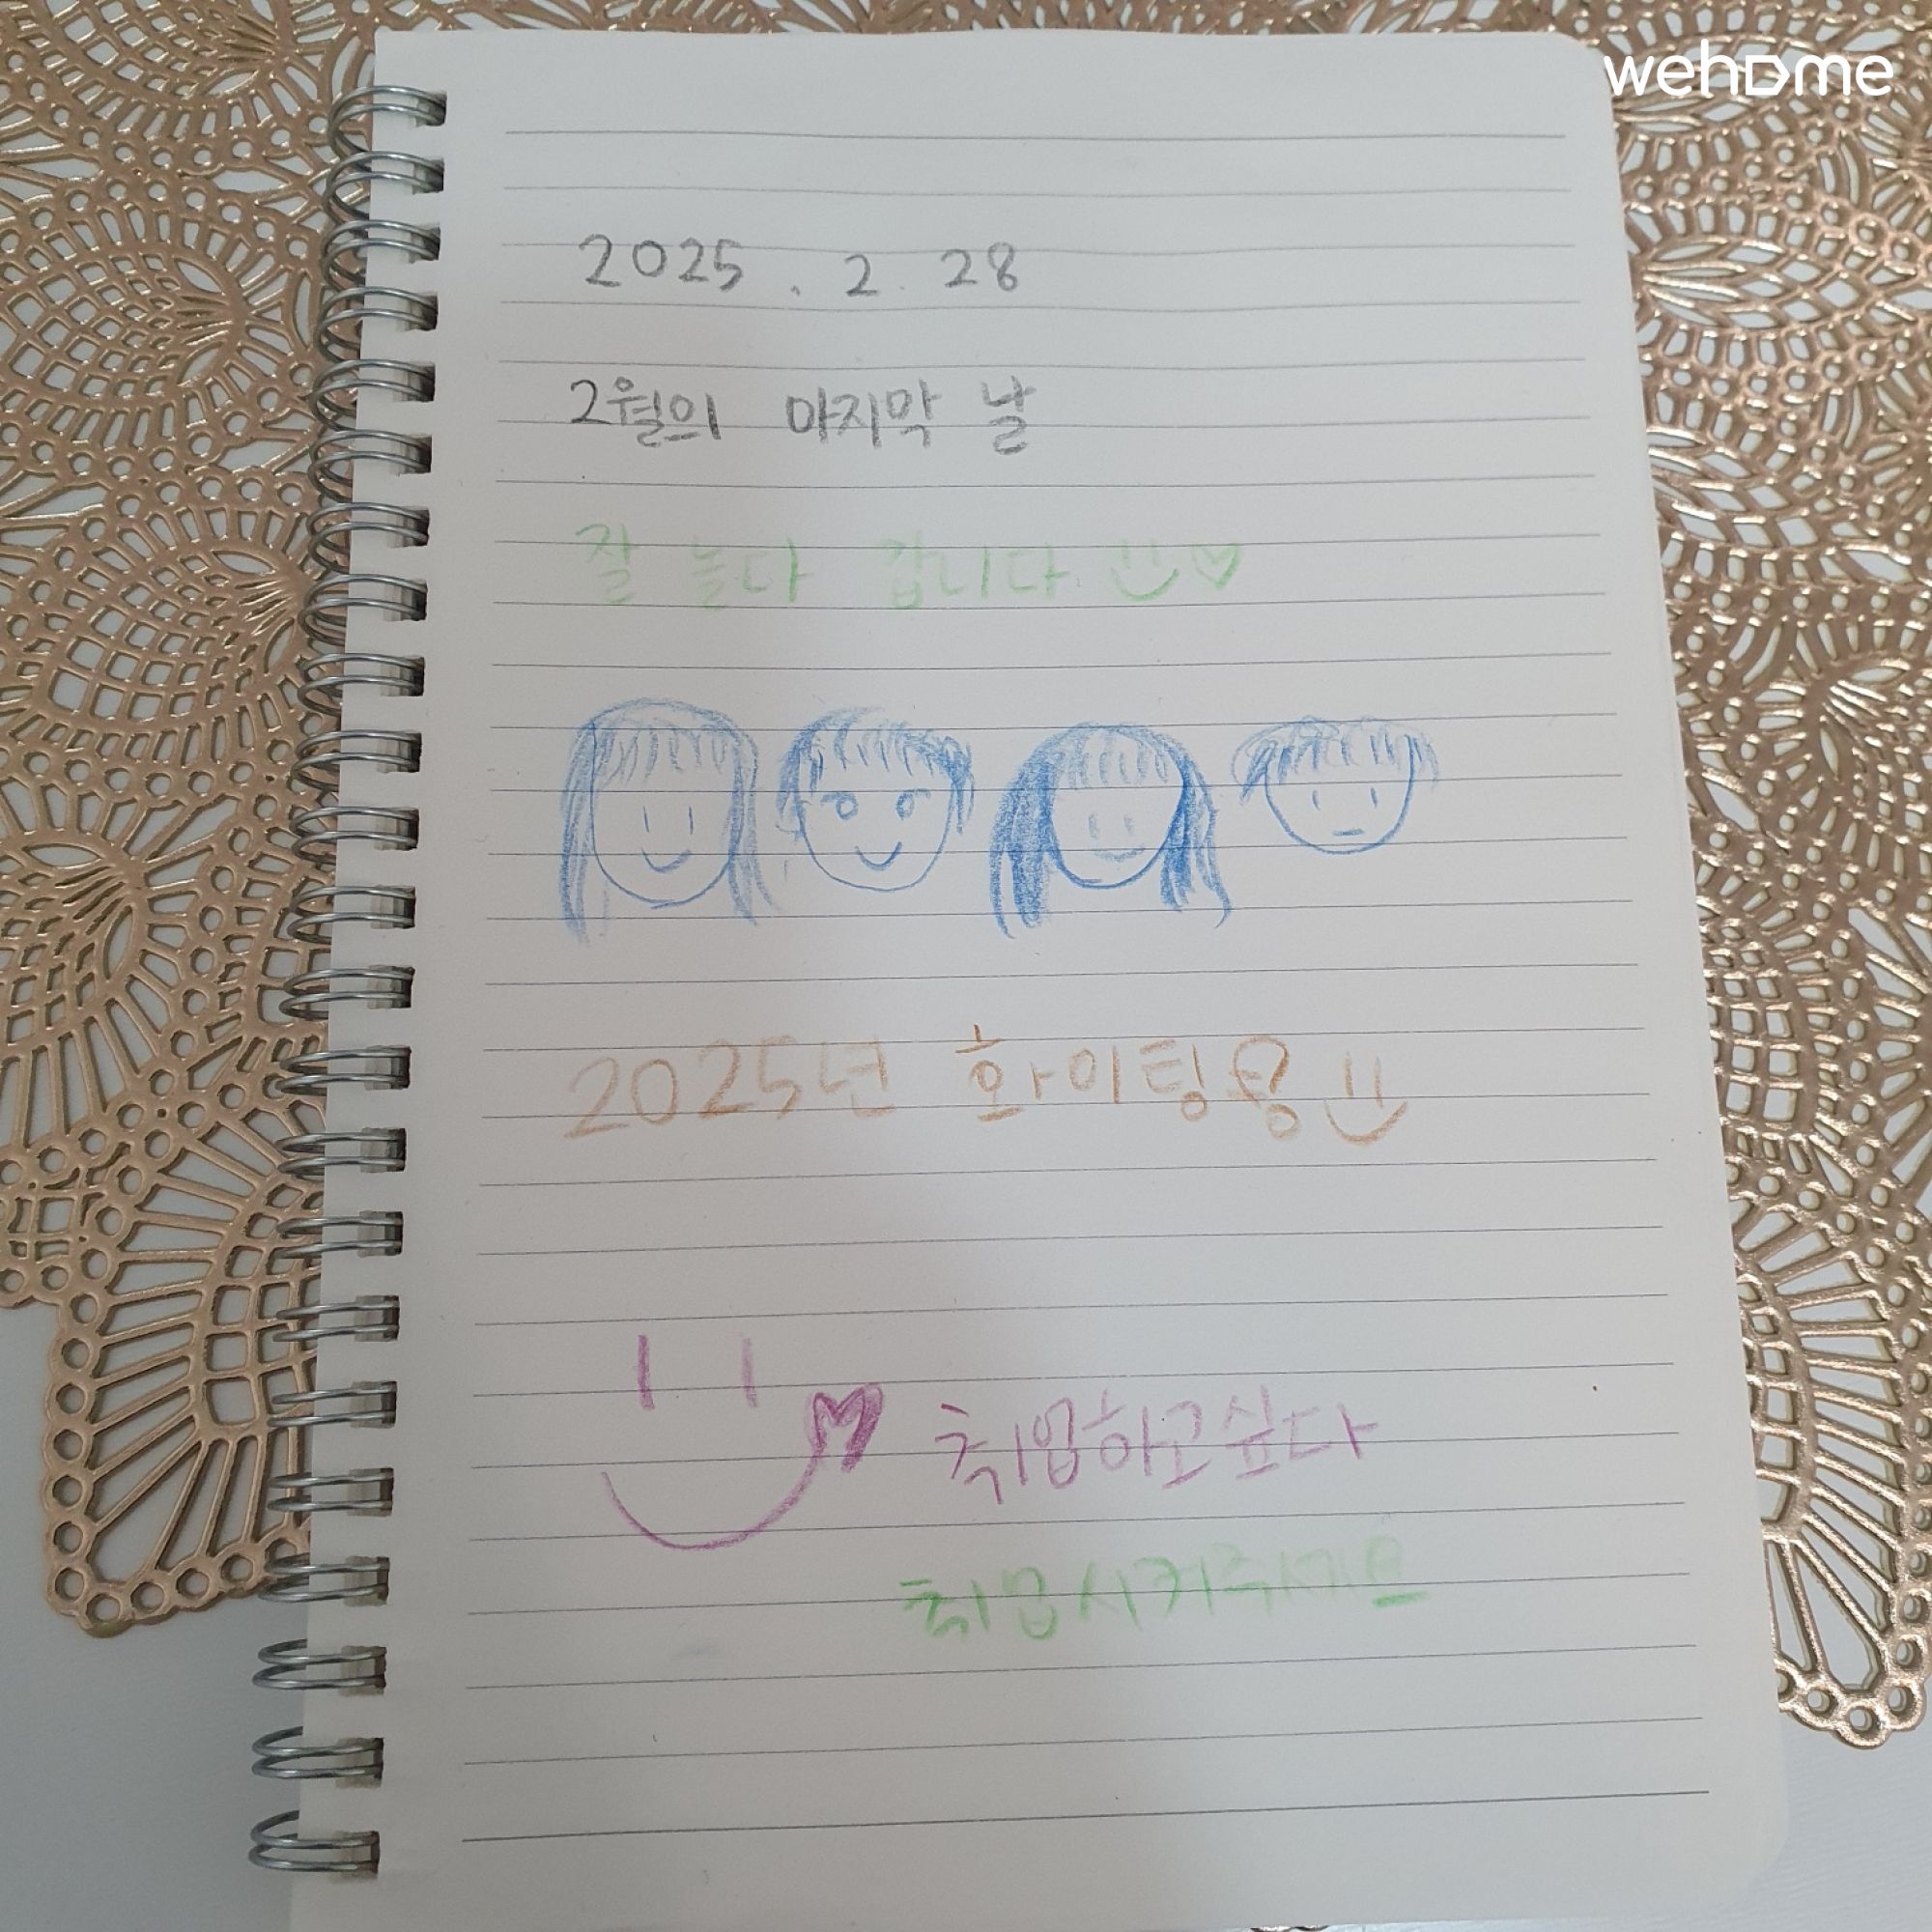 wehome
2025. 2. 28
2월의 마지막 날
잘 놀다 갑니다.
2025년 화이팅용
취업하고싶다
취업시켜주세요